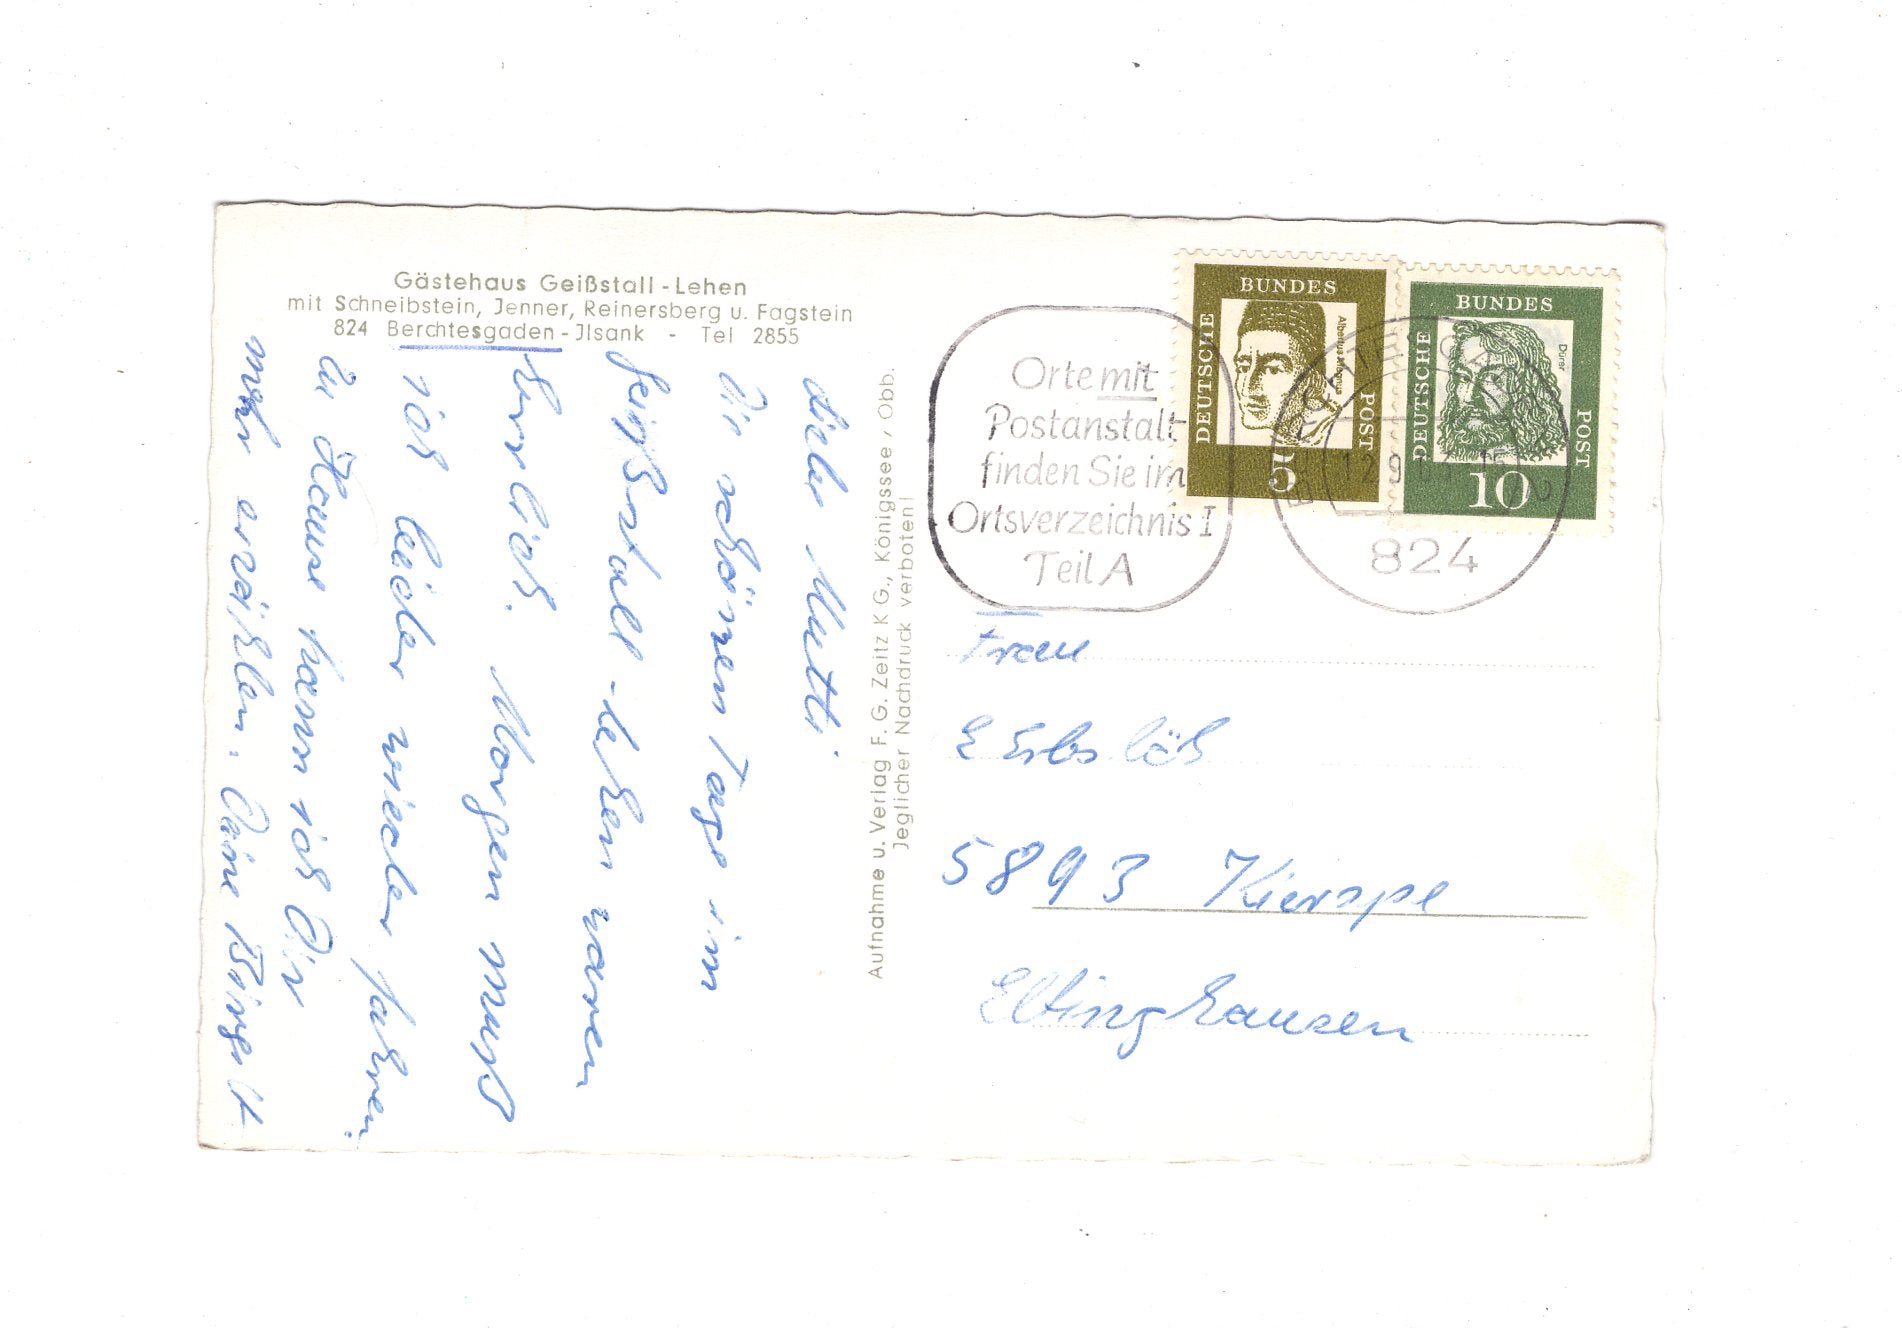 Gästehaus Geißstall-Lehen
mit Schneibstein, Jenner, Reinersberg u. Fagstein
824 Berchtesgaden-Jlsank - Tel 2855
Liebe Mutti
Die schönen Tage im
Geißstall-Lehen waren
herrlich. Morgen muß
ich leider wieder fahren.
Zu Hause kann ich Dir
mehr erzählen. Deine
Aufnahme u. Verlag F. G. Zeitz K G., Königssee / Obb.
Jeglicher Nachdruck verboten!
Orte mit
Postanstalt
finden Sie im
Ortsverzeichnis I
Teil A
DEUTSCHE BUNDES POST
Albertus Magnus
5
DEUTSCHE BUNDES POST
Dürer
10
824
Frau
5893 Kierspe